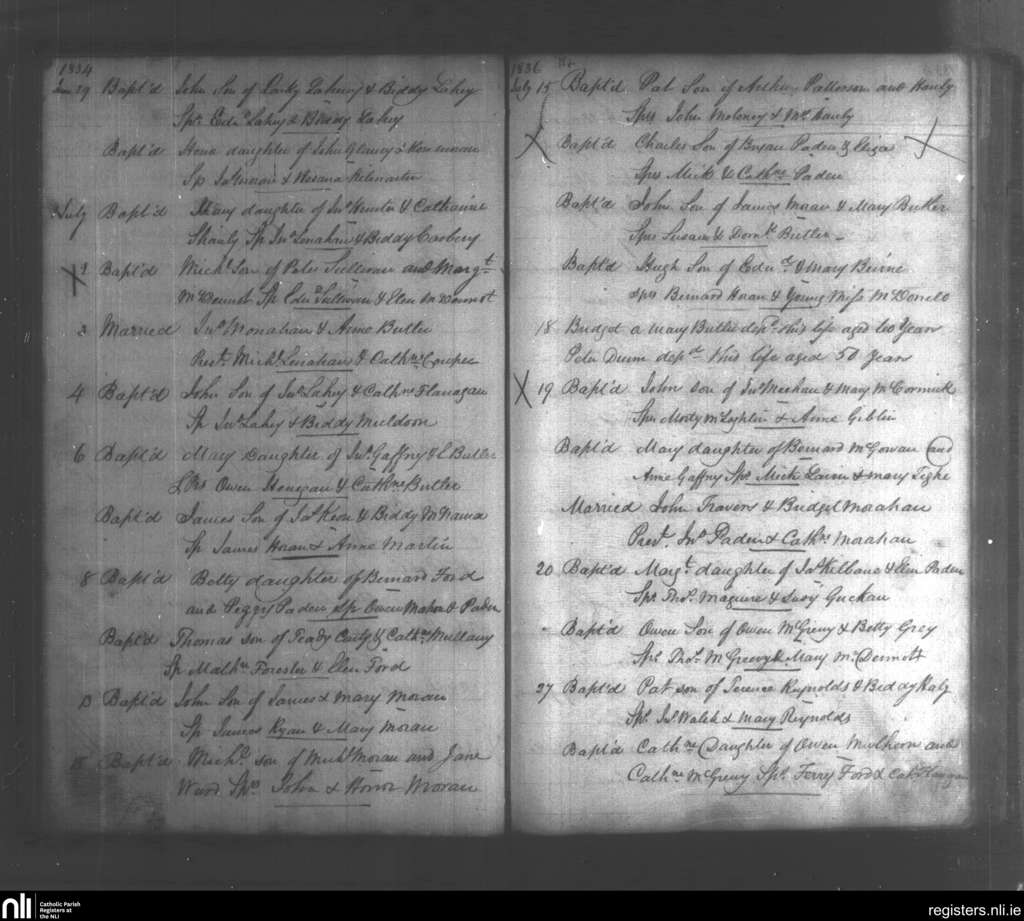 1834
June 29 Bapt'd John Son of Parky Lahey & Biddy Lahey
Sps Edwd Lahey & Biddy Lahey
Bapt'd Hona daughter of John &
Sp Jas Moran &
July Bapt'd Mary daughter of Jno Hunter & Catharine
Sp Jno Lenahan & Biddy
X 1 Bapt'd Michl Son of Peter Sullivan and Margt
McDermot Sp Edwd Sullivan & Elen McDermot
2 Married Jno Monahan & Anne Butler
Prest Michl Lenahan & Cathne Cowper
4 Bapt'd John Son of Jno Lahey & Cathne Flanagan
Sp Jno Lahey & Biddy Muldoon
6 Bapt'd Mary Daughter of Jno Gaffny & E Butler
Sprs Owen Honegan & Cathne Butler
Bapt'd James Son of Jas Keon & Biddy McNama
Sp James Horan & Anne Martin
8 Bapt'd Betty daughter of Bernard Ford
and Peggy Paden Sp Owen Mahon & Paden
Bapt'd Thomas son of Teady Carty & Cathne Mullany
Sp Mathw Forester & Elen Ford
13 Bapt'd John Son of James & Mary Moran
Sp James Ryan & Mary Moran
Bapt'd Michl son of Michl Moran and Jane
Ward Sps John & Honor Moran
1836
July 15 Bapt'd Pat Son of Arthur Patterson and Hanly
Sprs John Moloney & Hanly
X Bapt'd Charles Son of Bryan Paden & Eliza X
Sprs Mick & Cathne Paden
Bapt'd John Son of James Moran & Mary Butler
Sprs Susan & Butler
Bapt'd Hugh Son of Edwd & Mary Beirne
Sprs Bernard Horan & Young Miss McDonell
18 Bridget a Mary Butler depd this life aged 60 Years
Peter depd this life aged 50 Years
X 19 Bapt'd John son of Jno Meehan & Mary McCormick
Sprs Morty McLoghlin & Anne Giblin
Bapt'd Mary daughter of Bernard McGowan and
Anne Gaffny Sps Mick Lavin & Mary Tighe
Married John Travers & Bridget Monahan
Prest Jno Paden & Cathne Monahan
20 Bapt'd Margt daughter of Jas Kilbane & Elen Paden
Sps Thos Maguire & Susy Guckan
Bapt'd Owen Son of Owen McGrevy & Betty Grey
Sps Thos McGreevy & Mary McDermott
27 Bapt'd Pat son of Terence Reynolds & Biddy Haly
Sps Js Walsh & Mary Reynolds
Bapt'd Cathne Daughter of Owen Mulhern and
Cathne McGrevy Sps Ferry Ford &
nli
Catholic Parish
Registers at
the NLI
registers.nli.ie